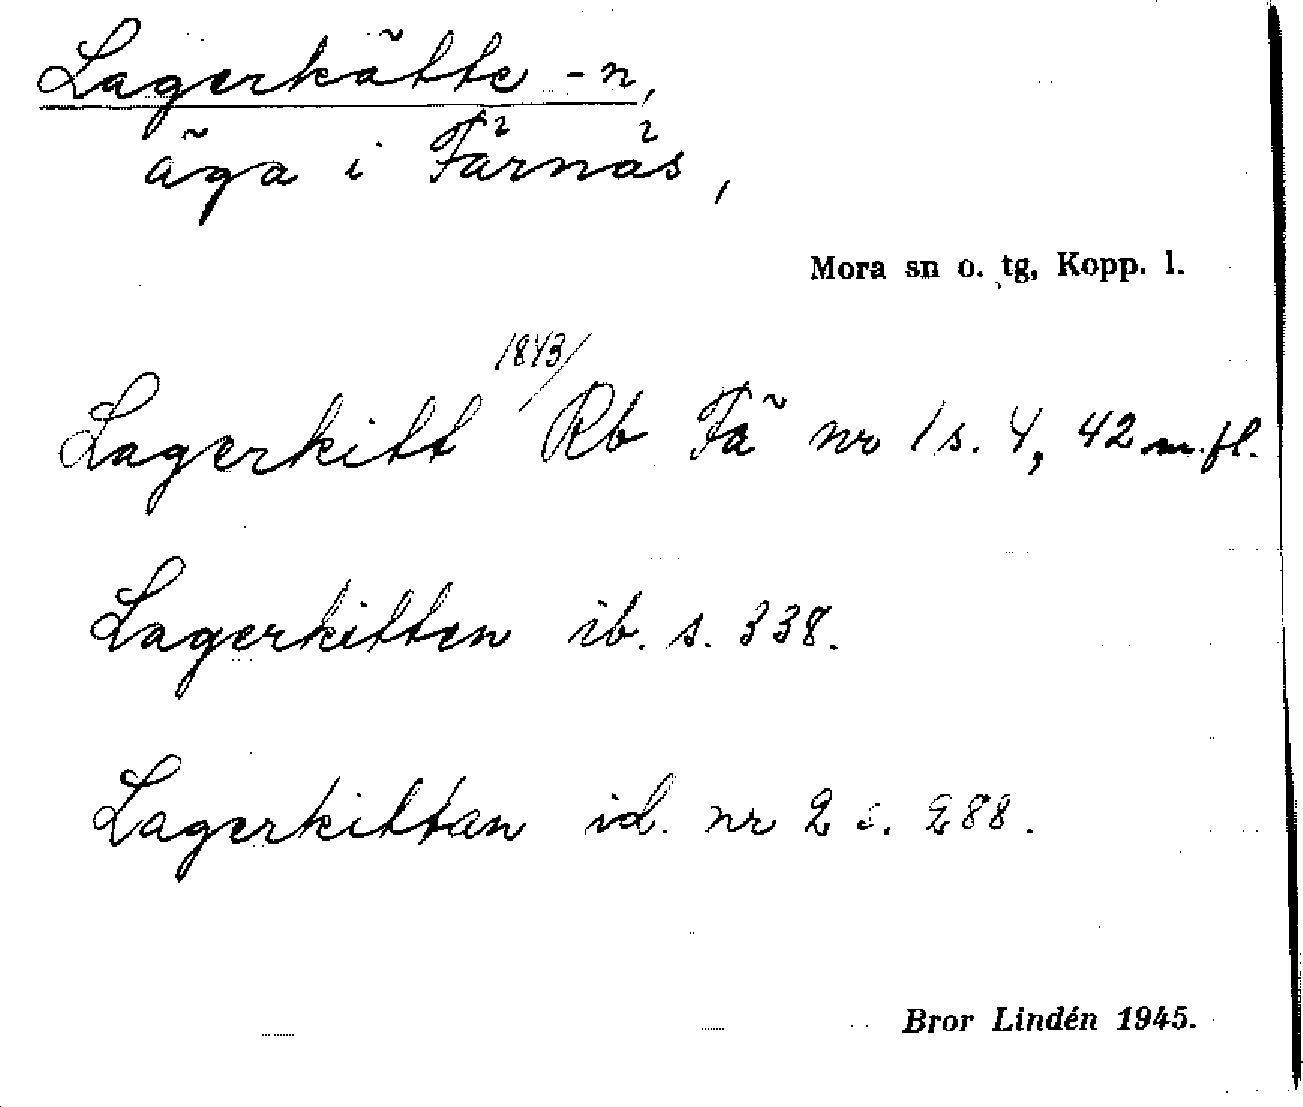 Lagerkätte -n,
äga i Färnäs,
Mora sn o. tg, Kopp. l.
1843/
Lagerkitt Rb Fä nr 1 s. 4, 42 m. fl.
Lagerkitten ib. s. 338.
Lagerkittan id. nr 2 s. 288.
Bror Lindén 1945.